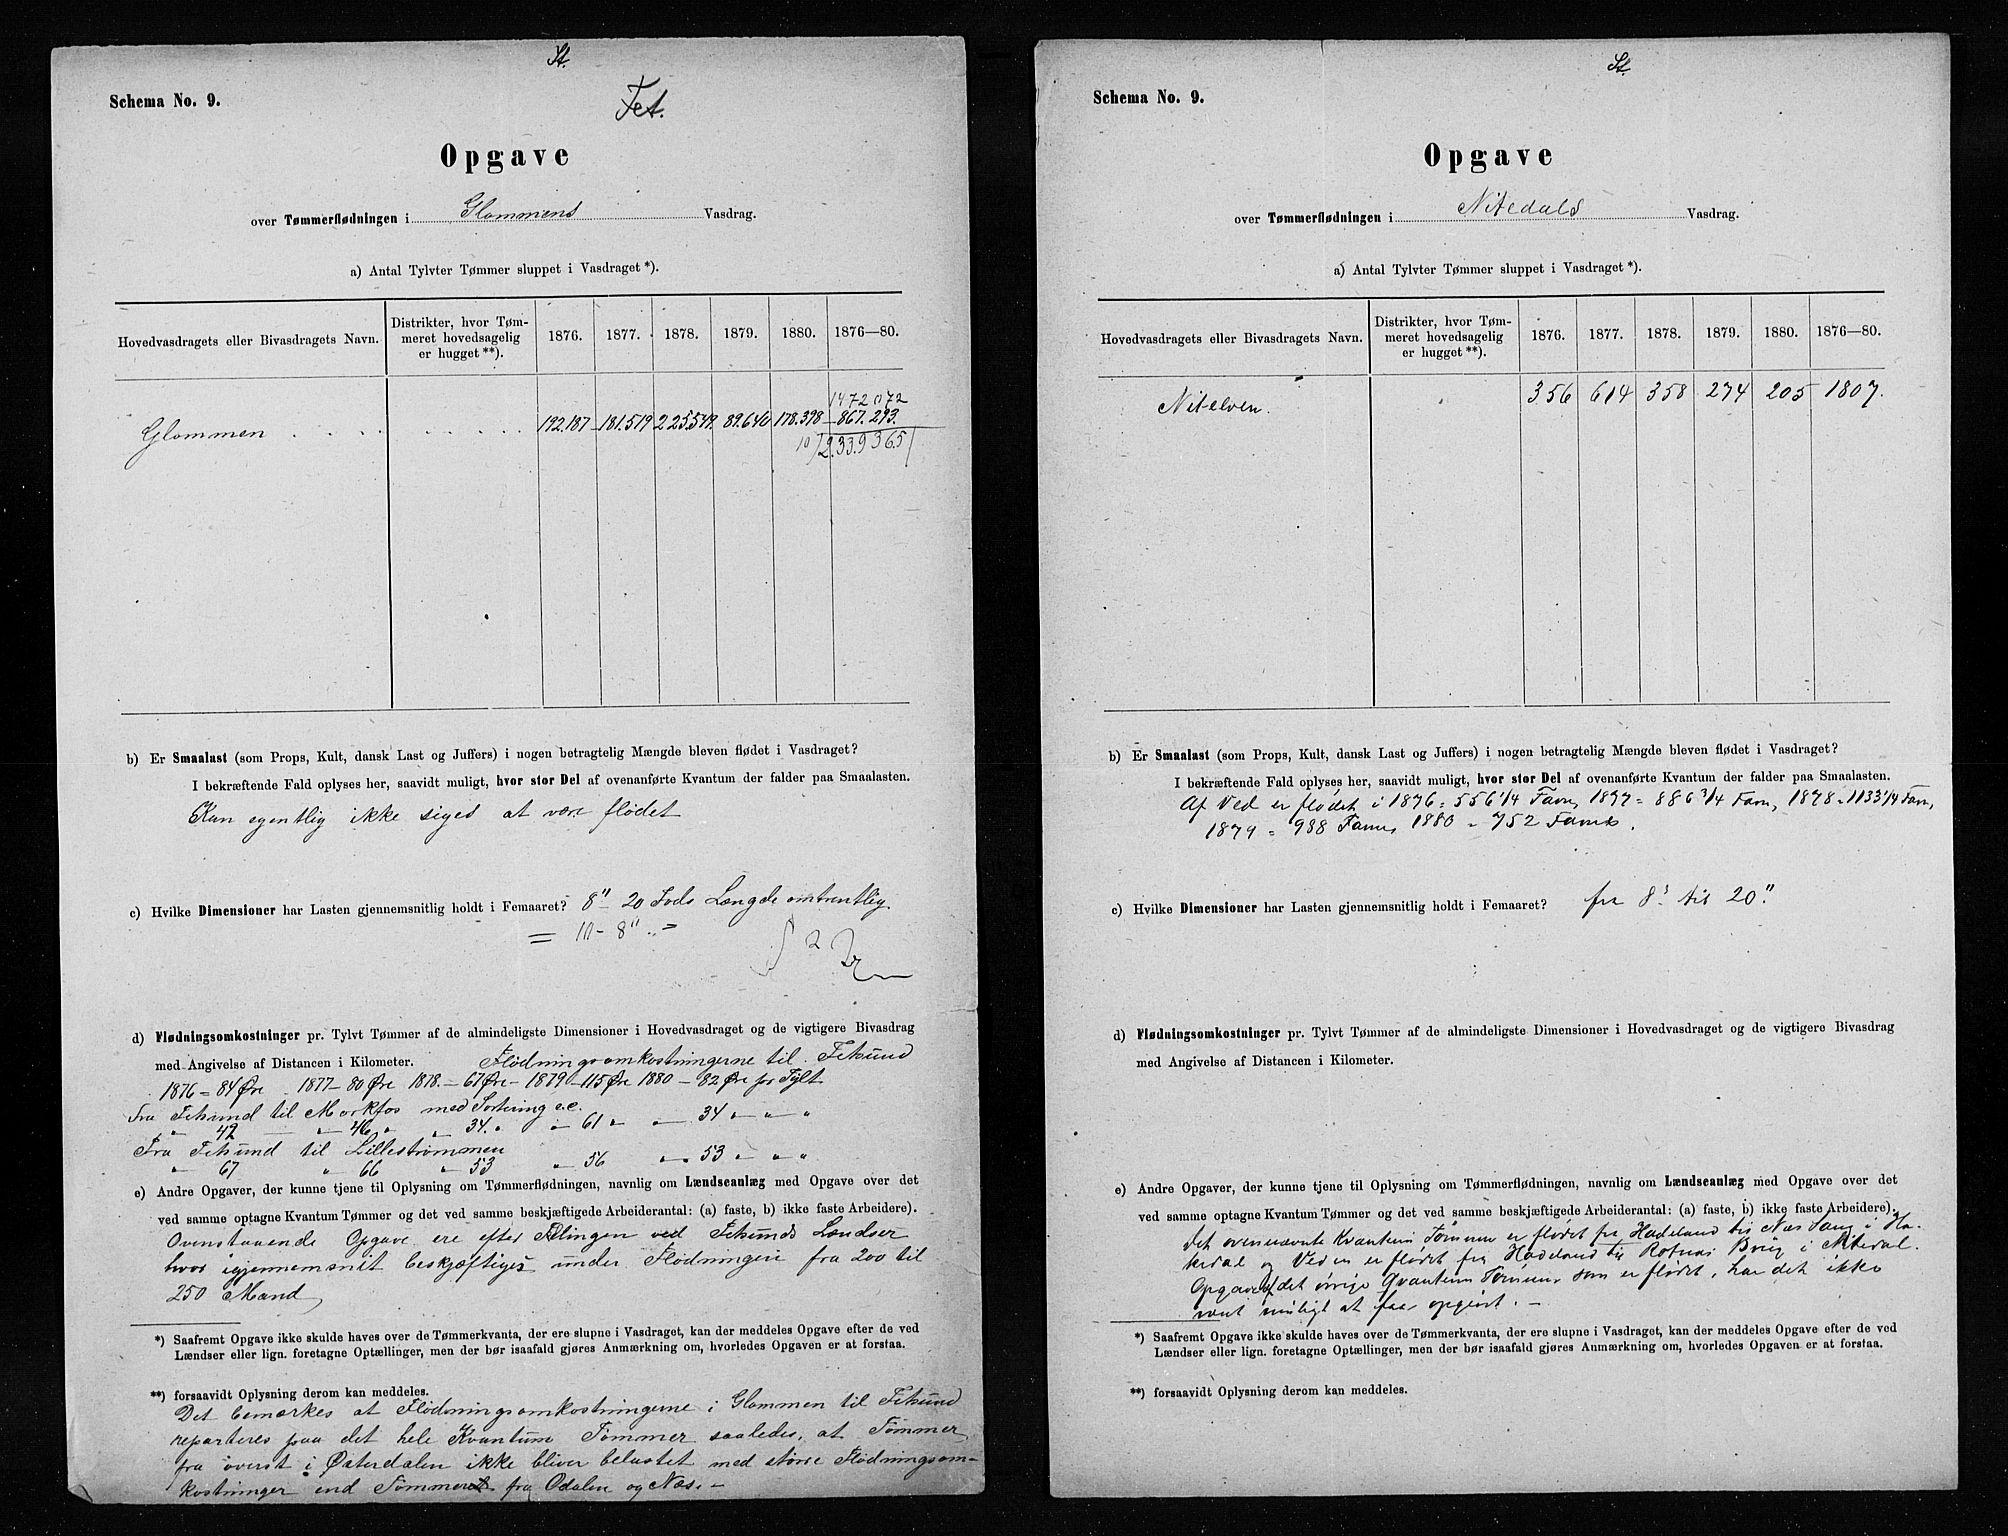 St.
Fet.
Schema No. 9.
Opgave
over Tømmerflødningen i Glommens Vasdrag.
a) Antal Tylvter Tømmer sluppet i Vasdraget *).
Hovedvasdragets eller Bivasdragets Navn. Distrikter, hvor Tømmeret hovedsagelig er hugget **). 1876. 1877. 1878. 1879. 1880. 1876—80.
1472072
Glommen . . . . . . . . . 192.187 181.519 225.549 89.640 178.398 867.293.
10/2.339365/
b) Er Smaalast (som Props, Kult, dansk Last og Juffers) i nogen betragtelig Mængde bleven flødet i Vasdraget?
I bekræftende Fald oplyses her, saavidt muligt, hvor stor Del af ovenanførte Kvantum der falder paa Smaalasten.
Kan egentlig ikke siges at være flødet
c) Hvilke Dimensioner har Lasten gjennemsnitlig holdt i Femaaret? 8" 20 Fods Længde omtrentlig.
= 10 - 8"
d) Flødningsomkostninger pr. Tylvt Tømmer af de almindeligste Dimensioner i Hovedvasdraget og de vigtigere Bivasdrag
med Angivelse af Distancen i Kilometer. Flødningsomkostningerne til Fetsund
1876 = 84 Øre 1877 — 80 Øre 1878. — 67 Øre — 1879 — 115 Øre 1880 — 82 Øre pr Tylt
Fra Fetsund til Morkfos med Sortering e.c.
" 42 — " 46 " " 34. " " 61 " " 34 " " "
Fra Fetsund til Lillestrømmen
" 67 " 66 " 53 " 56 " 53 " " "
e) Andre Opgaver, der kunne tjene til Oplysning om Tømmerflødningen, navnlig om Lændseanlæg med Opgave over det
ved samme optagne Kvantum Tømmer og det ved samme beskjæftigede Arbeiderantal: (a) faste, b) ikke faste Arbeidere).
Ovenstaaende Opgave ere efter Tællingen ved Fetsunds Lændser
hvor igjennemsnit beskjæftiges under Flødningen fra 200 til
250 Mand
*) Saafremt Opgave ikke skulde haves over de Tømmerkvanta, der ere slupne i Vasdraget, kan der meddeles Opgave efter de ved
Lændser eller lign. foretagne Optællinger, men der bør isaafald gjøres Anmærkning om, hvorledes Opgaven er at forstaa.
**) forsaavidt Oplysning derom kan meddeles.
Det bemærkes at Flødningsomkostningerne i Glommen til Fetsund
reparteres paa det hele Kvantum Tømmer saaledes, at Tømmer
fra øverst i Østerdalen ikke bliver belastet med større Flødningsom-
kostninger end Tømmeret fra Odalen og Næs. —
St.
Schema No. 9.
Opgave
over Tømmerflødningen i Nitedals Vasdrag.
a) Antal Tylvter Tømmer sluppet i Vasdraget *).
Hovedvasdragets eller Bivasdragets Navn. Distrikter, hvor Tømmeret hovedsagelig er hugget **). 1876. 1877. 1878. 1879. 1880. 1876—80.
Nitelven. 356 614 358 274 205 1807.
b) Er Smaalast (som Props, Kult, dansk Last og Juffers) i nogen betragtelig Mængde bleven flødet i Vasdraget?
I bekræftende Fald oplyses her, saavidt muligt, hvor stor Del af ovenanførte Kvantum der falder paa Smaalasten.
Af Ved er flødet i 1876 = 556 1/4 Favn, 1877 = 886 3/4 Favn, 1878 = 1133 1/4 Favn,
1879 = 988 Favn, 1880 = 752 Favne.
c) Hvilke Dimensioner har Lasten gjennemsnitlig holdt i Femaaret? fra 8" til 20".
d) Flødningsomkostninger pr. Tylvt Tømmer af de almindeligste Dimensioner i Hovedvasdraget og de vigtigere Bivasdrag
med Angivelse af Distancen i Kilometer.
e) Andre Opgaver, der kunne tjene til Oplysning om Tømmerflødningen, navnlig om Lændseanlæg med Opgave over det
ved samme optagne Kvantum Tømmer og det ved samme beskjæftigede Arbeiderantal: (a) faste, b) ikke faste Arbeidere).
det ovennævnte Kvantum Tømmer er flødet fra Hadeland til Næs Saug i Ha-
kedal og Veden er flødet fra Hadeland til Rotnæs Brug i Nitedal.
Opgave af det øvrige Qvantum Tømmer som er flødet, har det ikke
været muligt at faae opgivet. —
*) Saafremt Opgave ikke skulde haves over de Tømmerkvanta, der ere slupne i Vasdraget, kan der meddeles Opgave efter de ved
Lændser eller lign. foretagne Optællinger, men der bør isaafald gjøres Anmærkning om, hvorledes Opgaven er at forstaa.
**) forsaavidt Oplysning derom kan meddeles.